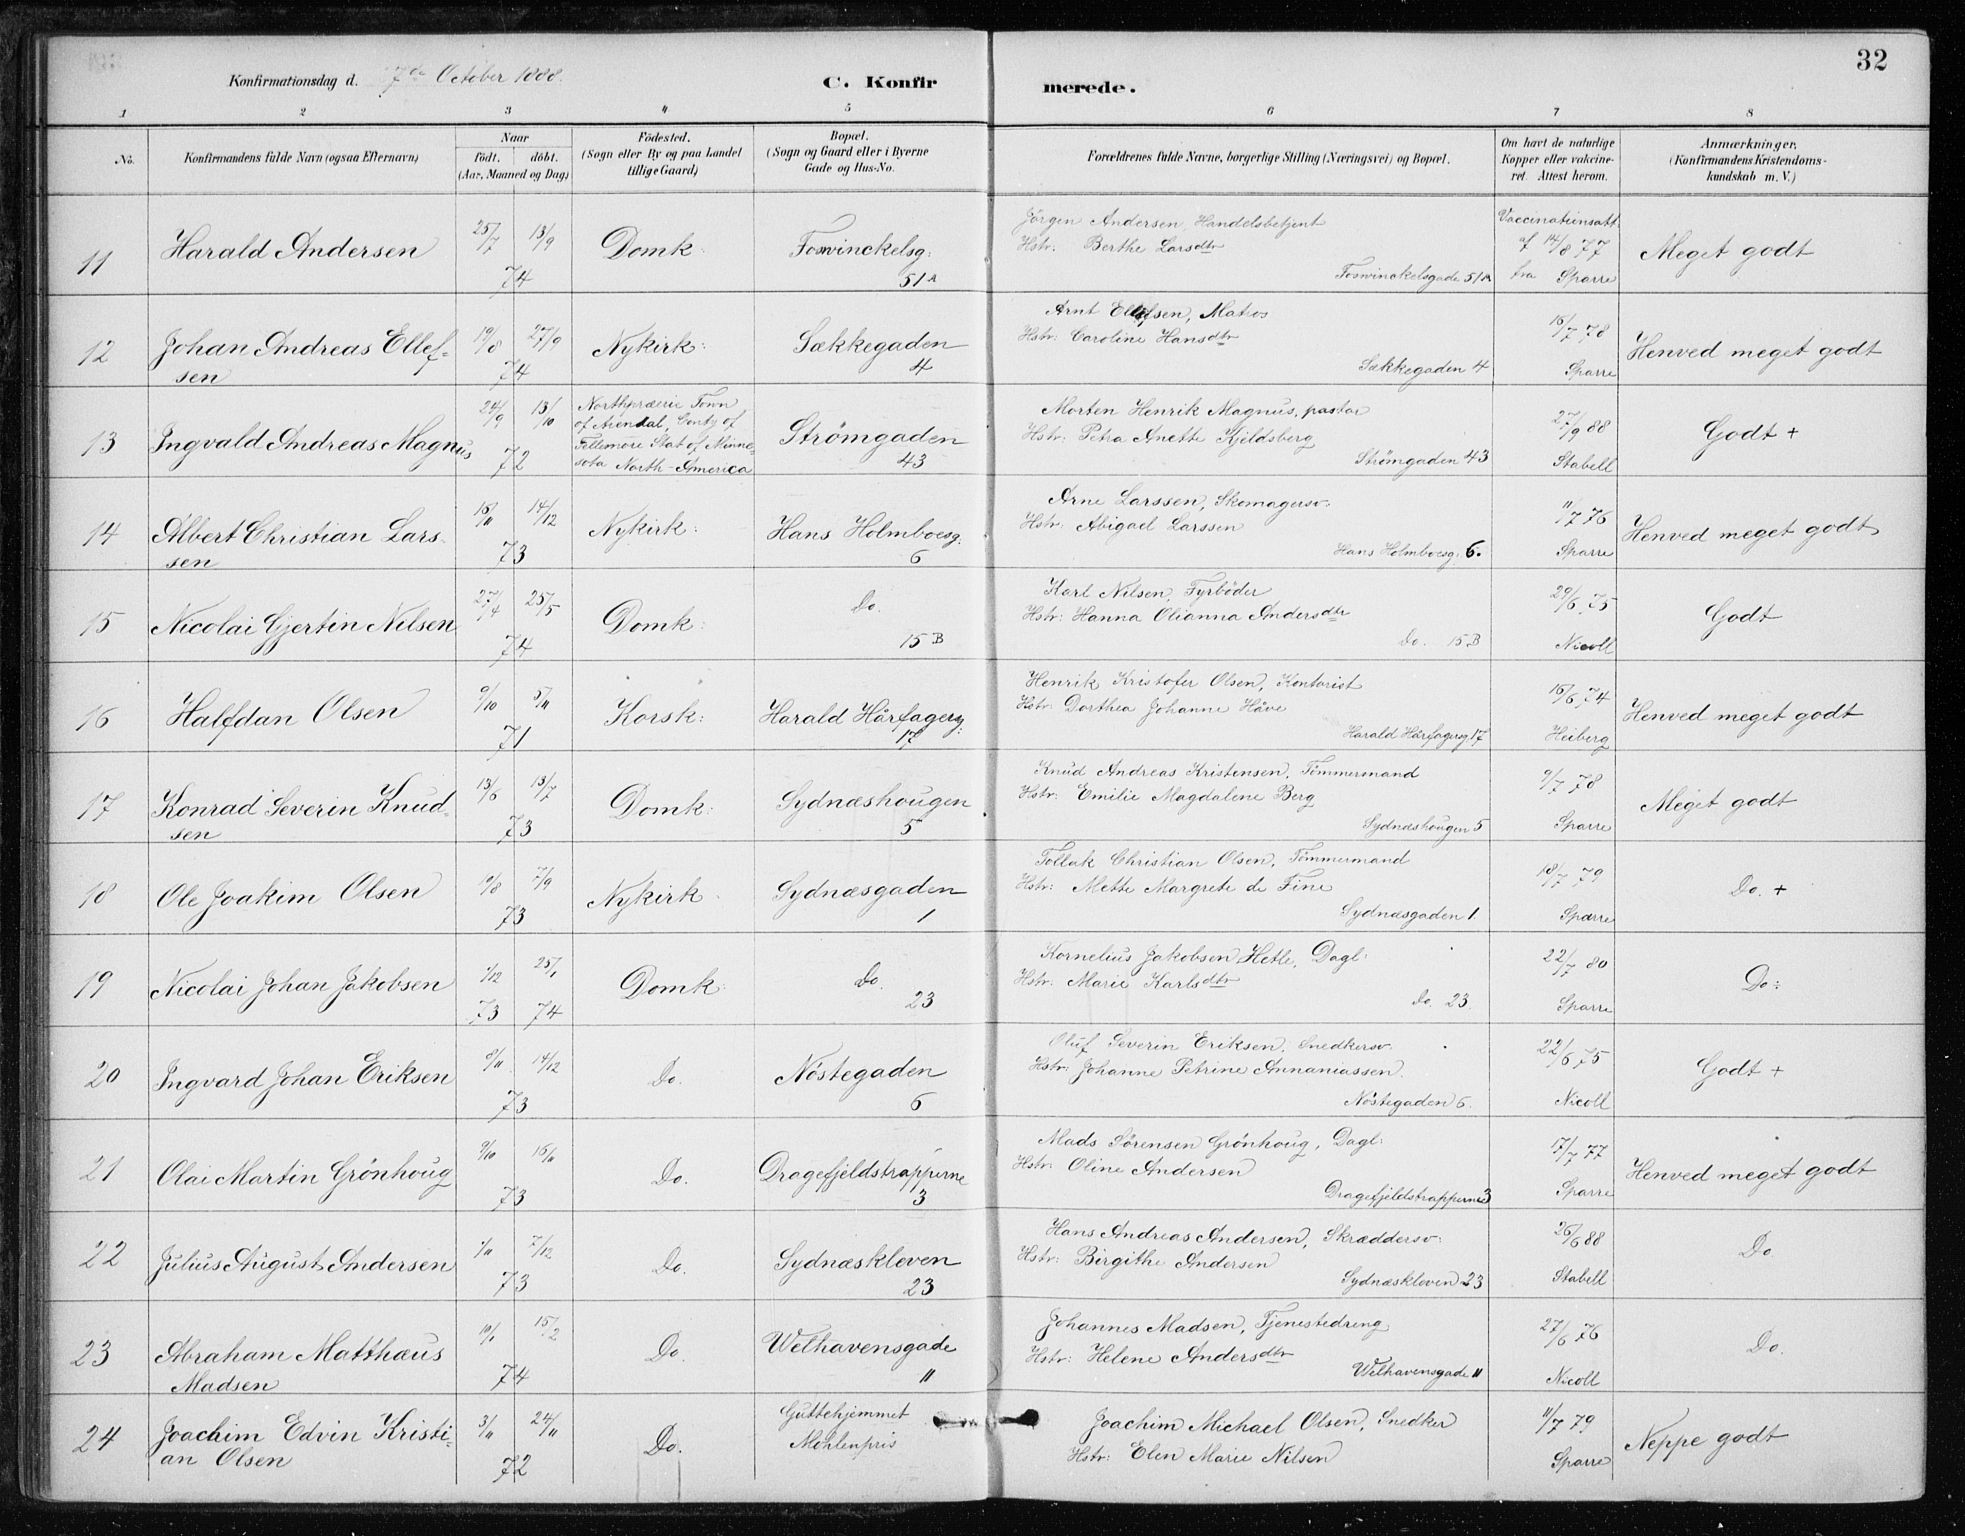 32
Konfirmationsdag d. 7de October 1888.
C. Konfir merede.
1 2 3 4 5 6 7 8
No.
Konfirmandens fulde Navn (ogsaa Efternavn)
Naar
födt. döbt.
(Aar, Maaned og Dag)
Födested.
(Sogn eller By og paa Landet
tillige Gaard)
Bopæl.
(Sogn og Gaard eller i Byerne
Gade og Hus-No.
Forældrenes fulde Navne, borgerlige Stilling (Næringsvei) og Bopæl.
Om havt de naturlige
Kopper eller vakcine-
ret. Attest herom.
Anmærkninger.
(Konfirmandens Kristendoms-
kundskab m. V.)
11 Harald Andersen 25/7 13/9 74 Domk: Fosvinckelsg: 51A
Jörgen Andersen, Handelsbetjent
Hstr: Berthe Larsdtr
Fosvinckelsgade 51A
Vaccinationsatt.
af 14/8 77
fra Sparre
Meget godt
12 Johan Andreas Ellef-
sen 19/8 27/9 74 Nykirk: Sækkegaden 4
Arnt Ellefsen, Matros
Hstr: Caroline Hansdtr
Sækkegaden 4
16/7 78
Sparre
Henved meget godt
13 Ingvald Andreas Magnus 24/9 13/10 72
Northpræerie Town
of Arendal, Conty of
Fellemore Stat of Minne-
sota North-America
Strömgaden 43
Morten Henrik Magnus, pastor
Hstr: Petra Anette Kjeldsberg
Strömgaden 43
27/9 88
Stabell
Godt +
14 Albert Christian Lars-
sen 16/11 14/12 73 Nykirk: Hans Holmboesg. 6
Arne Larssen, Skomagersv.
Hstr: Abigael Larssen
Hans Holmboesg. 6.
11/7 76
Sparre
Henved meget godt
15 Nicolai Gjertin Nilsen 27/4 25/5 74 Domk: Do. 15B
Karl Nilsen, Fyrböder
Hstr: Hanna Olianna Andersdtr
Do. 15B
29/6, 75
Nicoll
Godt
16 Halfdan Olsen 9/10 5/11 71 Korsk: Harald Hårfagersg: 17
Henrik Kristofer Olsen, Kontorist
Hstr: Dorthea Johanne Håve
Harald Hårfagersg. 17
16/6, 74
Heiberg
Henved meget godt
17 Konrad Severin Knud-
sen 13/6 13/7 73 Domk: Sydnæshougen 5
Knud Andreas Kristensen, Tömmermand
Hstr: Emilie Magdalene Berg
Sydnæshougen 5
9/7 78
Sparre
Meget godt
18 Ole Joakim Olsen 10/8 7/9 73 Nykirk Sydnæsgaden 1
Tollak Christian Olsen, Tömmermand
Hstr: Mette Margrete de Fine
Sydnæsgaden 1.
18/7 79
Sparre
Do. +
19 Nicolai Johan Jakobsen 1/12 73 25/1 74 Domk: Do 23
Kornelius Jakobsen Hetle, Dagl:
Hstr: Marie Karlsdtr
Do. 23.
22/7 80
Sparre
Do÷
20 Ingvard Johan Eriksen 8/11 14/12 73 Do. Nöstegaden 6
Oluf Severin Eriksen, Snedkersv.
Hstr: Johanne Petrine Annaniassen.
Nöstegaden 6.
22/6, 75
Nicoll
Godt +
21 Olai Martin Grönhoug 9/10 16/11 73 Do. Dragefjeldstrapperne 3
Mads Sörensen Grönhoug, Dagl:
Hstr: Oline Andersen
Dragefjeldstrapperne 3
17/7 77
Sparre
Henved meget godt
22 Julius August Andersen 1/11 7/12 73 Do. Sydnæskleven 23
Hans Andreas Andersen, Skræddersv:
Hstr: Birgithe Andersen
Sydnæskleven 23
26/6 88
Stabell
Do
23 Abraham Matthæus
Madsen 10/1 15/2 74 Do. Welhavensgade 11
Johannes Madsen, Tjenestedreng
Hstr: Helene Andersdtr
Welhavensgade 11
27/6 76
Nicoll
Do.
24 Joachim Edvin Kristi-
an Olsen 3/11 24/11 72 Do.
Guttehjemmet
Möhlenpris
Joachim Michael Olsen, Snedker
Hstr: Elen Marie Nilsen
11/7 79
Sparre
Neppe godt